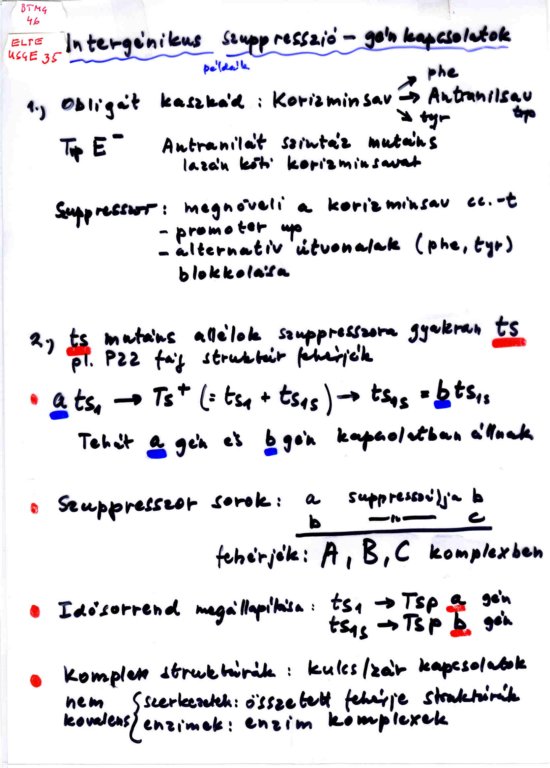 BTMG
46
ELTE
USGE 35
Intergénikus szuppresszió – gén kapcsolatok
példák
1., Obligát kaszkád : Korizminsav → Antranilsav
phe
tyr
trp
Trp E⁻ Antranilát szintáz mutáns
lazán köti korizminsavat
Szuppresszor : megnöveli a korizminsav cc.-t
- promoter up
- alternatív útvonalak (phe, tyr)
blokkolása
2., ts mutáns allélok szuppresszora gyakran ts
pl. P22 fág struktúr fehérjék
• a ts₁ → Ts⁺ (= ts₁ + ts₁s) → ts₁s = b ts₁s
Tehát a gén és b gén kapcsolatban állnak
• Szuppresszor sorok : a suppresszálja b
b —"— c
fehérjék : A, B, C komplexben
• Idősorrend megállapítása : ts₁ → Tsp a gén
ts₁s → Tsp b gén
• Komplex struktúrák : kulcs/zár kapcsolatok
nem kovalens { szerkezetek : összetett fehérje struktúrák
enzimek : enzim komplexek